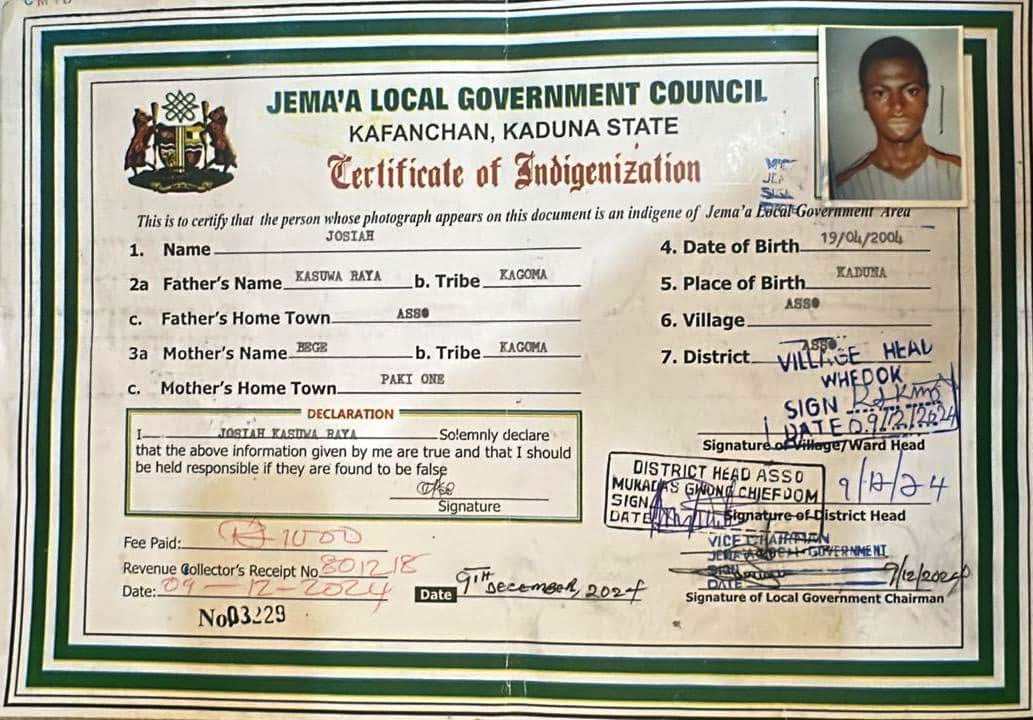 JEMA'A LOCAL GOVERNMENT COUNCIL
KAFANCHAN, KADUNA STATE
Certificate of Indigenization
This is to certify that the person whose photograph appears on this document is an indigene of Jema'a Local Government Area
1. Name JOSIAH
2a Father's Name KASUWA RAYA b. Tribe KAGOMA
c. Father's Home Town ASSO
3a Mother's Name BEGE b. Tribe KAGOMA
c. Mother's Home Town PAKI ONE
4. Date of Birth 19/04/2004
5. Place of Birth KADUNA
6. Village ASSO
7. District ASSO
VILLAGE HEAD
WHEDOK
SIGN
DATE 09/12/2024
Signature of Village/Ward Head
DECLARATION
I JOSIAH KASUWA RAYA Solemnly declare
that the above information given by me are true and that I should
be held responsible if they are found to be false
Signature
DISTRICT HEAD ASSO
GWONG CHIEFDOM
SIGN
DATE
9/12/24
Signature of District Head
VICE CHAIRMAN
JEMA'A LOCAL GOVERNMENT
SIGN
DATE
9/12/2024
Signature of Local Government Chairman
Fee Paid: ₦ 1000
Revenue Collector's Receipt No 801218
Date: 09-12-2024
Date 9TH DECEMBER, 2024
No 03229